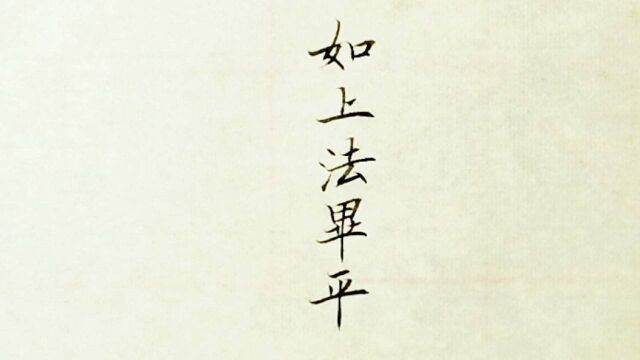 如上法畢平